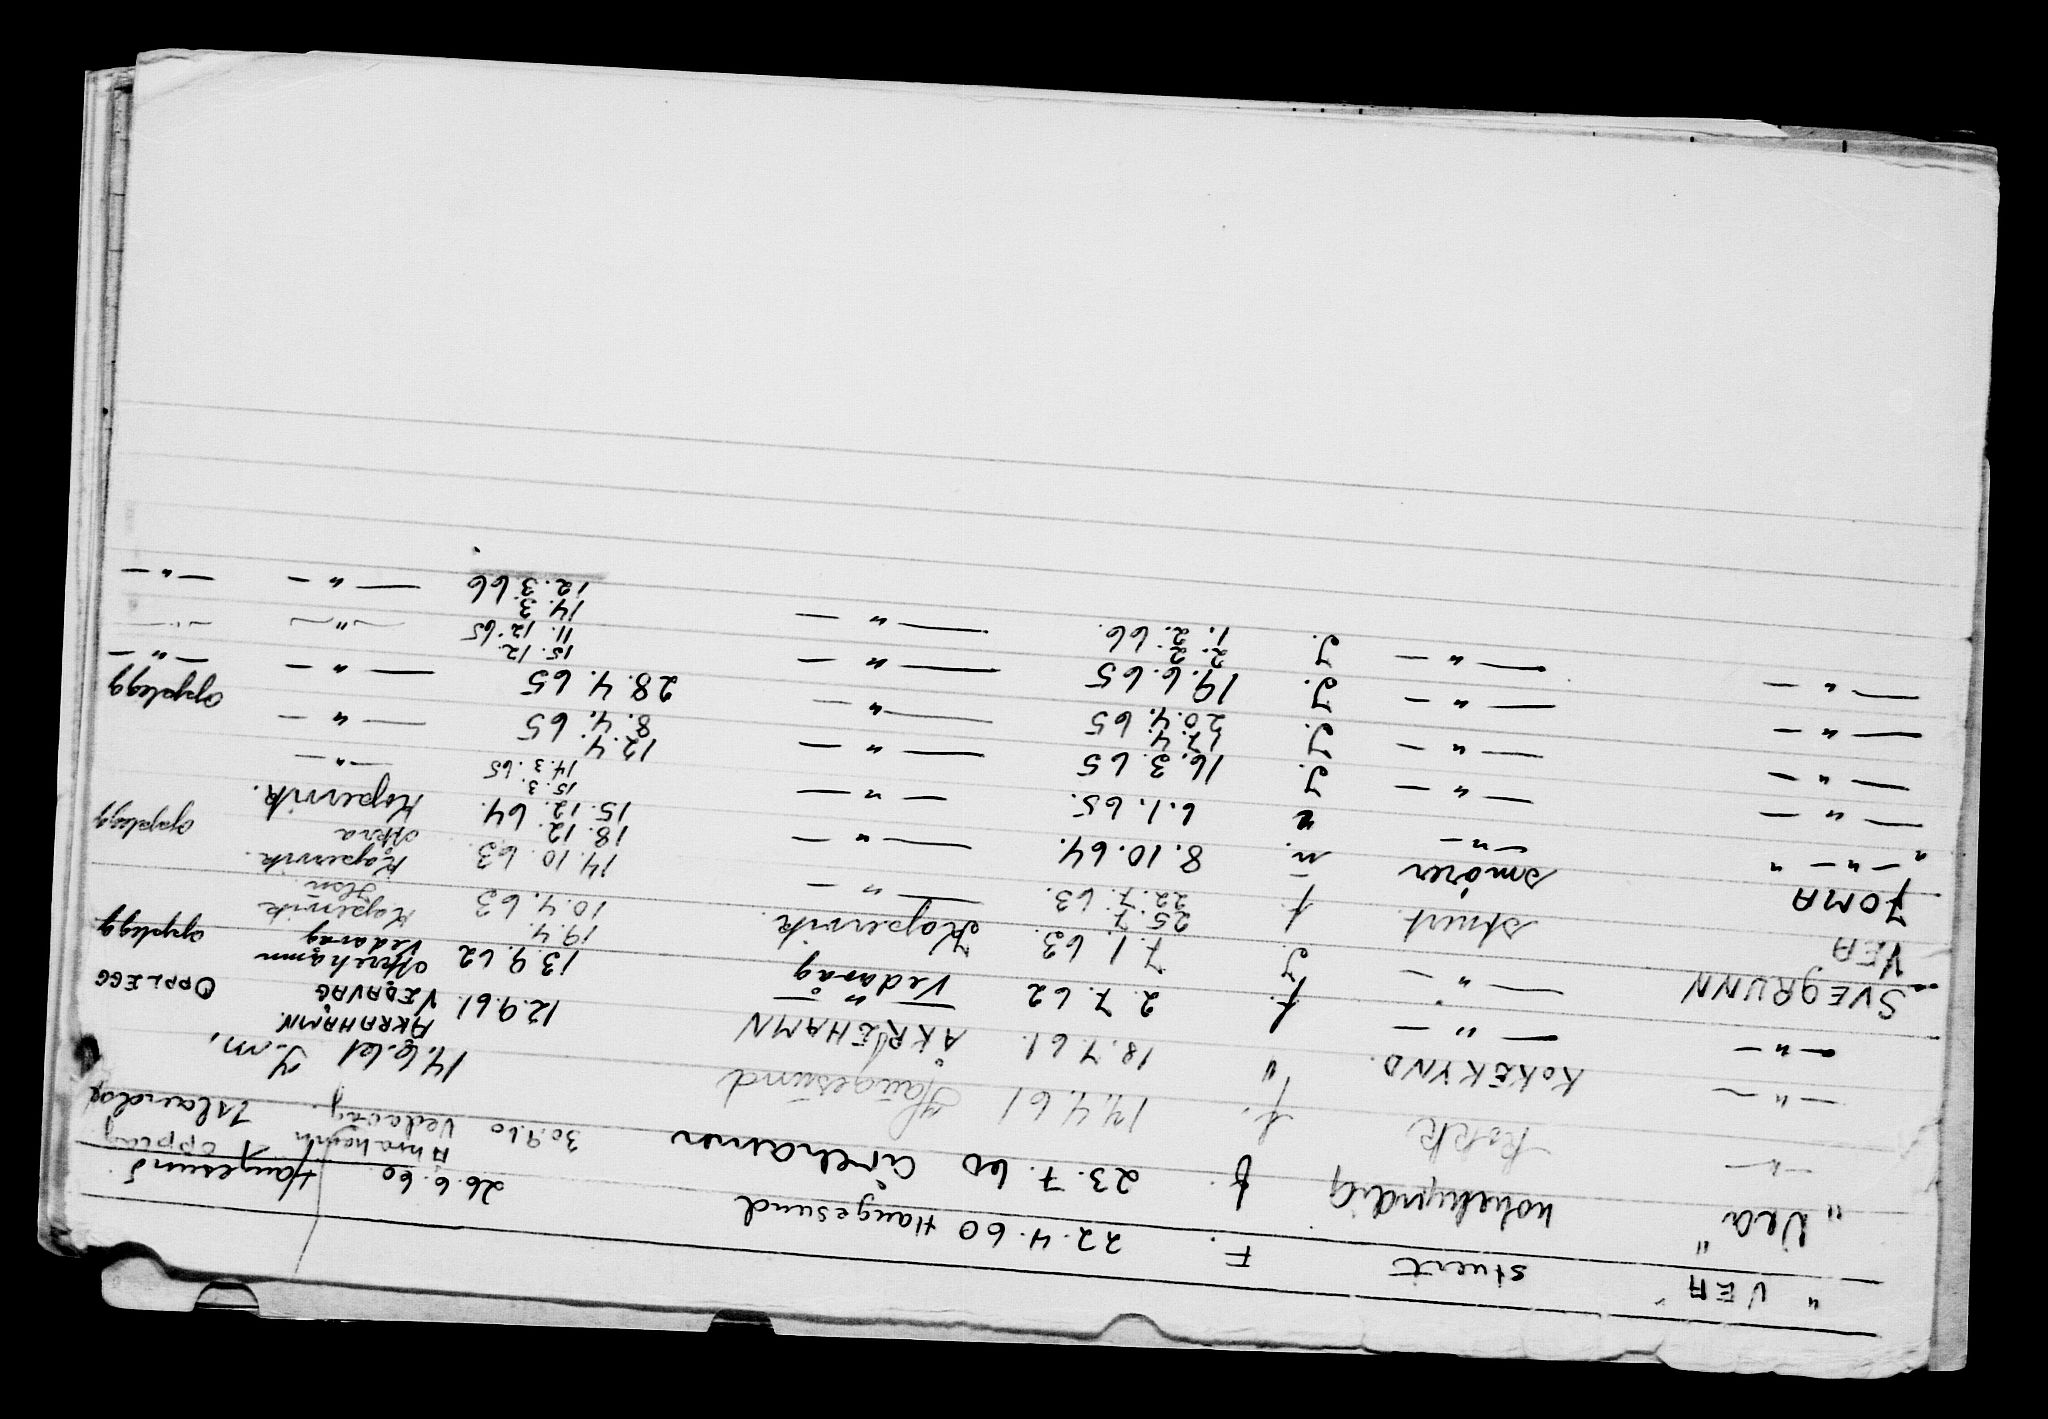 " VEA " stuert F. 22.4.60 Haugesund 26.6.60 Haugesund
" Vea " f. 23.7.60 30.9.60 opplag
" — Kokk f. 14.4.61 Haugesund 14.6.61
— " — KOKEKYND. " 18.7.61 ÅKREHAMN 12.9.61 ÅKRAHAMN. VEDAVÅG OPPLEGG
— " — — " — f. 2.7.62 Vedavåg 13.9.62 Åkrehamn Vedavåg opplegg
SVEGRUNN — " — J. 7.1.63. Kopervik. 19.4. 10.4.63 Kopervik
VEA stuert. f. 25.7. 22.7.63. — " — 14.10.63. Kopervik.
JOMA smører n. 8.10.64. — " — 18.12. 15.12.64. Åkra opplegg
" — " — " — " — " 6.1.65. — " — 15.3. 14.3.65 Kopervik.
— " — — " — J. 16.3.65 — " — 12.4. 8.4.65 — " —
— " — — " — J. 20.4.65 — " — 28.4.65 — " — opplegg
— " — — " — J. 19.6.65 — " — 15.12. 11.12.65 — " — — " —
— " — — " — J. 2.2. 1.2.66. — " — 14.3. 12.3.66 — " — — " —